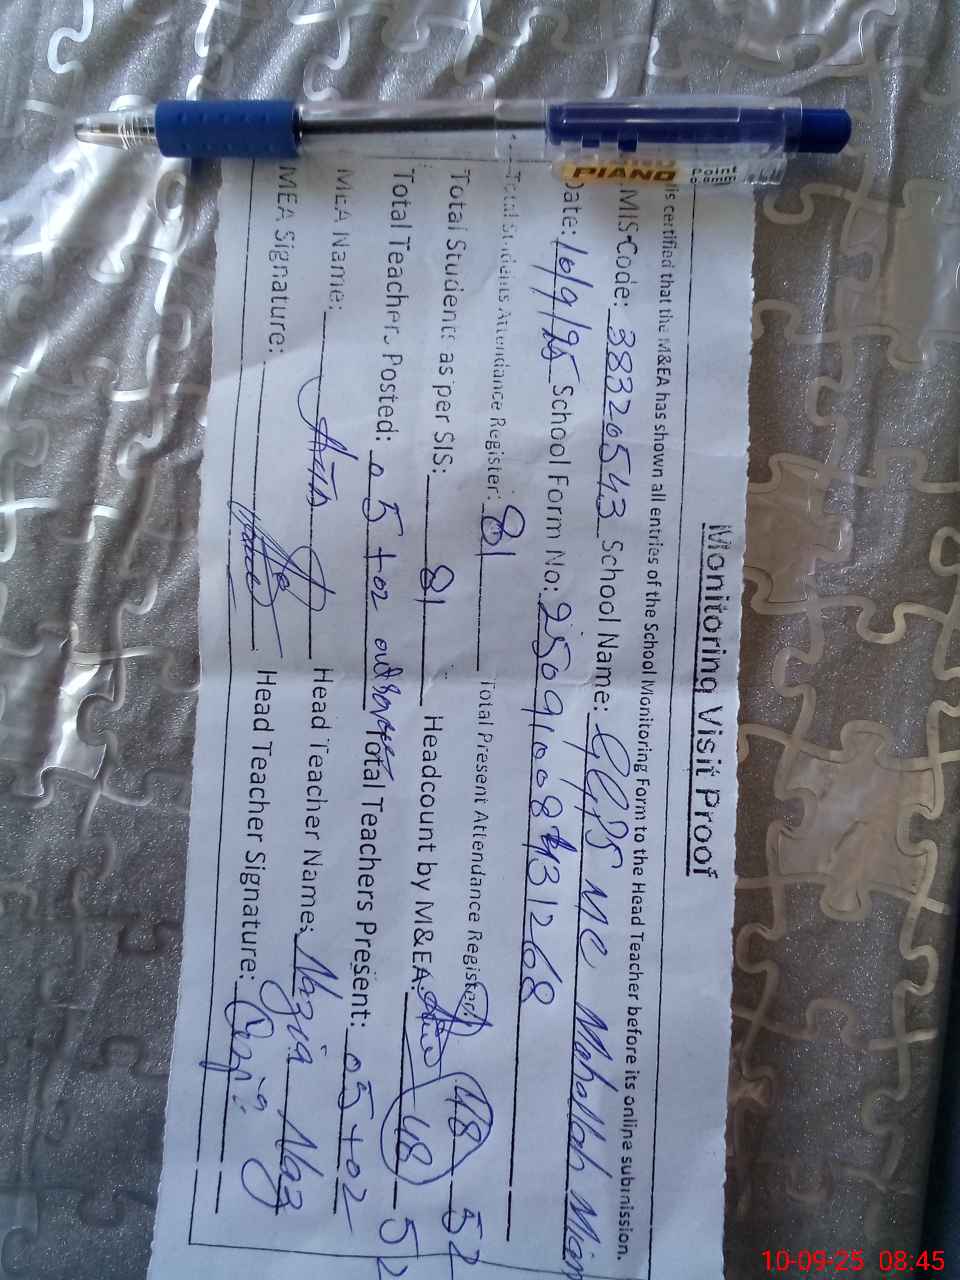 Monitoring Visit Proof
is certified that the M&EA has shown all entries of the School Monitoring Form to the Head Teacher before its online submission.
MIS Code: 38320543 School Name: GGPS MC Mohallah Mian
Date: 10/9/25 School Form No: 25091008431268
Total Students Attendance Register: 81 Total Present Attendance Register: 48 52
Total Students as per SIS: 81 Headcount by M&EA: 48 52
Total Teachers Posted: 05+02 Total Teachers Present: 05+02
MEA Name: Head Teacher Name: Nazia Naz
MEA Signature: Head Teacher Signature:
PIANO
10-09-25 08:45